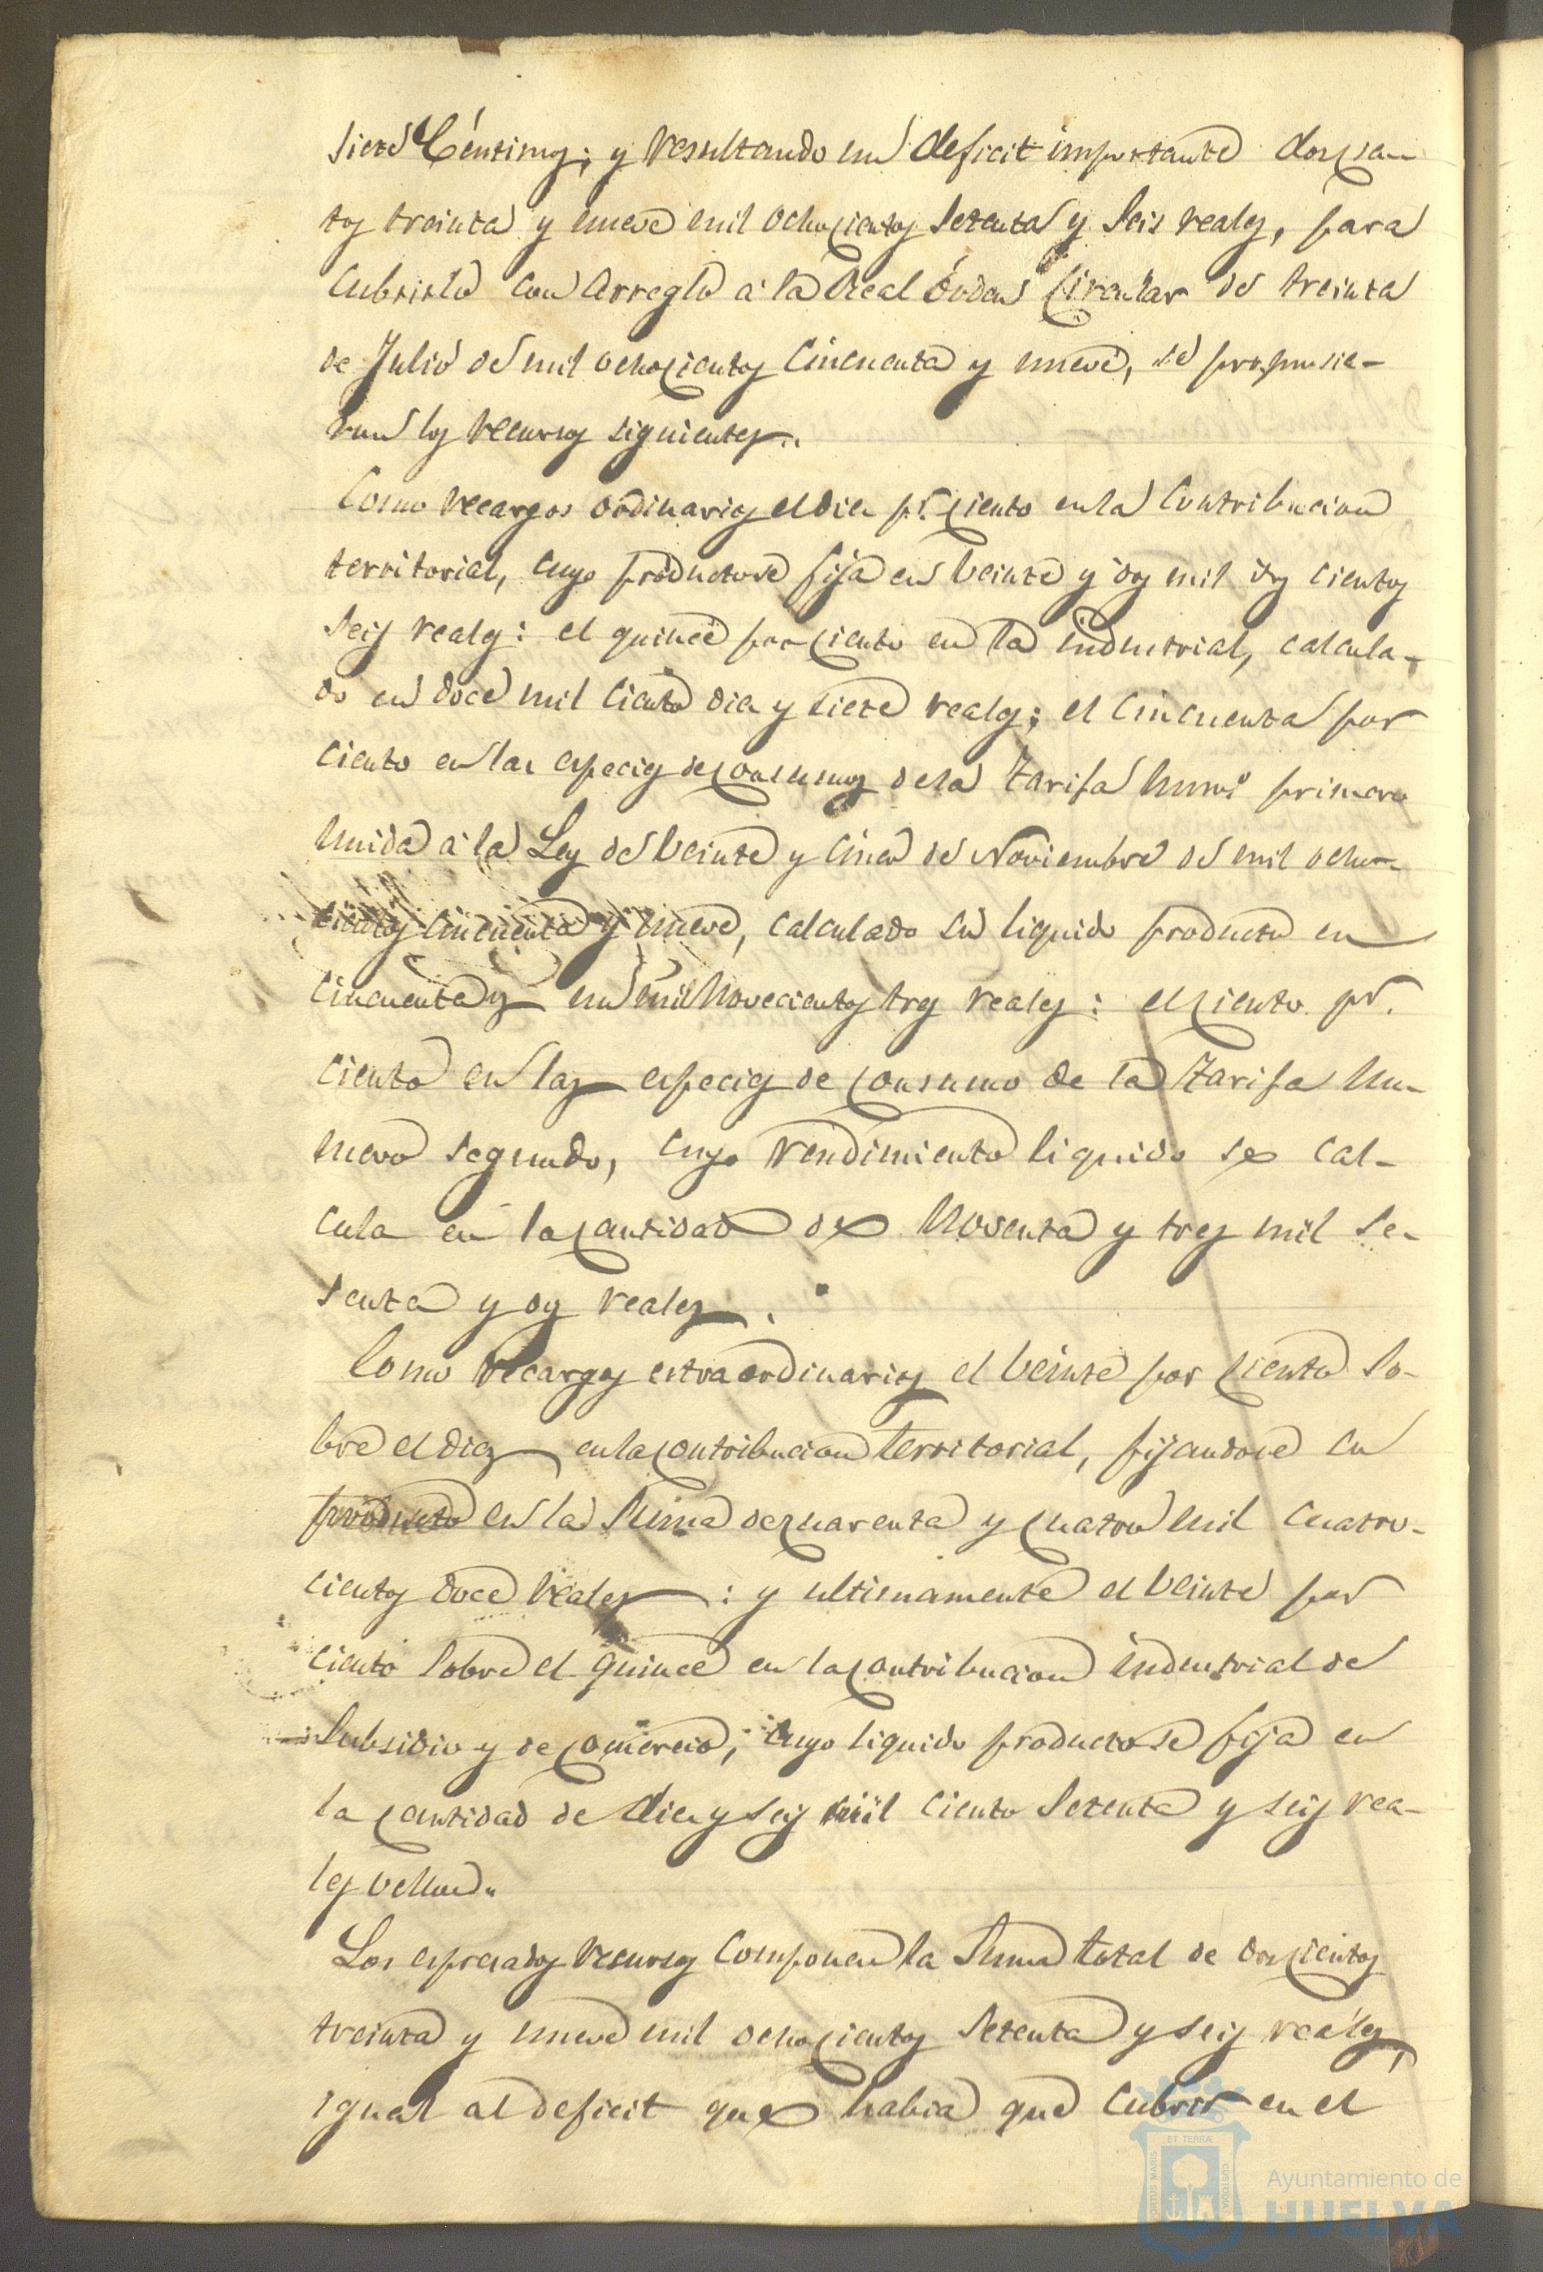 siete Céntimos; y resultando un deficit importante doscien-
tos treinta y nueve mil ochocientos setenta y seis reales, para
cubrirlo con arreglo á la Real órden Circular de treinta
de Julio de mil ochocientos cincuenta y nueve, se propusie-
ron los recursos siguientes..
Como recargos ordinarios el diez pr. ciento en la Contribucion
territorial, cuyo producto se fija en veinte y dos mil dos cientos
seis reales: el quince por ciento en la industrial, calcula-
do en doce mil ciento diez y siete reales; el cincuenta por
ciento en las especies de consumos de la Tarifa numo. primero
unida á la Ley de veinte y cinco de Noviembre de mil ocho-
cientos cincuenta y nueve, calculado su liquido producto en
cincuenta y un mil novecientos tres reales: el ciento pr.
ciento en las especies de consumo de la Tarifa nu-
mero segundo, cuyo rendimiento liquido se cal-
cula en la cantidad de noventa y tres mil se-
senta y dos reales.
Como recargos extraordinarios el veinte por ciento so-
bre el diez en la contribucion territorial, fijandose su
producto en la suma de cuarenta y cuatro mil cuatro-
cientos doce reales: y ultimamente el veinte por
ciento sobre el quince en la contribucion industrial de
subsidio y de comercio, cuyo liquido producto se fija en
la cantidad de diez y seis mil ciento setenta y seis rea-
les vellon.
Los espresados recursos componen la suma total de doscientos
treinta y nueve mil ochocientos setenta y seis reales,
igual al deficit que habia que cubrir en el
PORTUS MARIS
ET TERRÆ
CUSTODIA
Ayuntamiento de
HUELVA